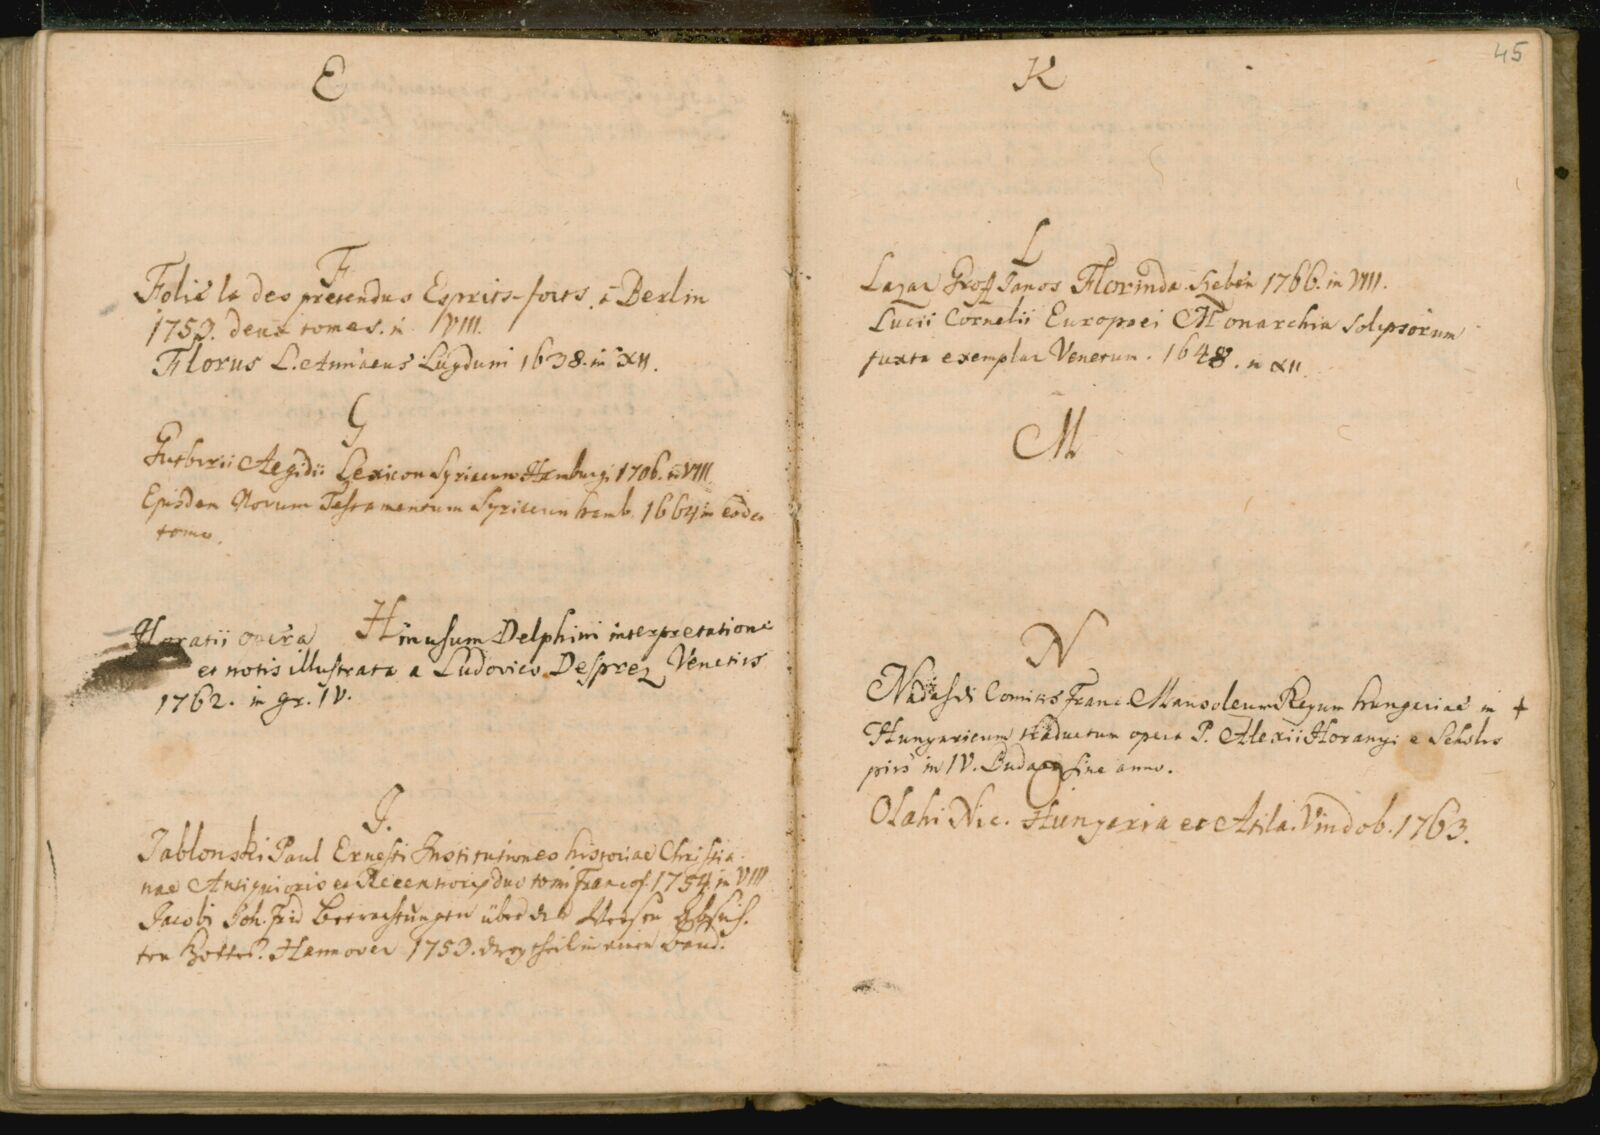 E
F
Folie la des pretendus Esprits-forts. à Berlin
1753. deux tomes. in VIII.
Florus L. Annaeus Lugduni 1638. in XII.
G
Gutbirii Aegidii Lexicon Syriacum Hamburgi 1706. in VIII.
Ejusdem Novum Testamentum Syriacum hamb. 1664 in eodem
tomo.
H
Horatii opera in usum Delphini interpretatione
et notis illustrata a Ludovico Desprez Venetiis
1762. in gr. IV.
J.
Jablonski Paul Ernesti Institutiones historiae Christia
nae Antiquioris et Recentioris duo tomi Francof. 1754. in VIII
Jacobi Joh. Frid Betrachtungen über die Weisen Absich.
ten Gottes. Hannover 1753. drey theil in einen band.
45
K
L
Lazar Groff Janos Florinda Szeben 1766. in VIII.
Lucii Cornelii Europaei Monarchia Solipsorum
juxta exemplar Venetum. 1648. in XII.
M
N
Nadasdi Comitis Franc. Mausoleum Regum hungariae in +
Hungaricum traductum opera P. Alexii Horanyi e Scholis
piis in IV. Budae sine anno.
O
Olahi Nic. Hungaria et Atila. Vindob. 1763.